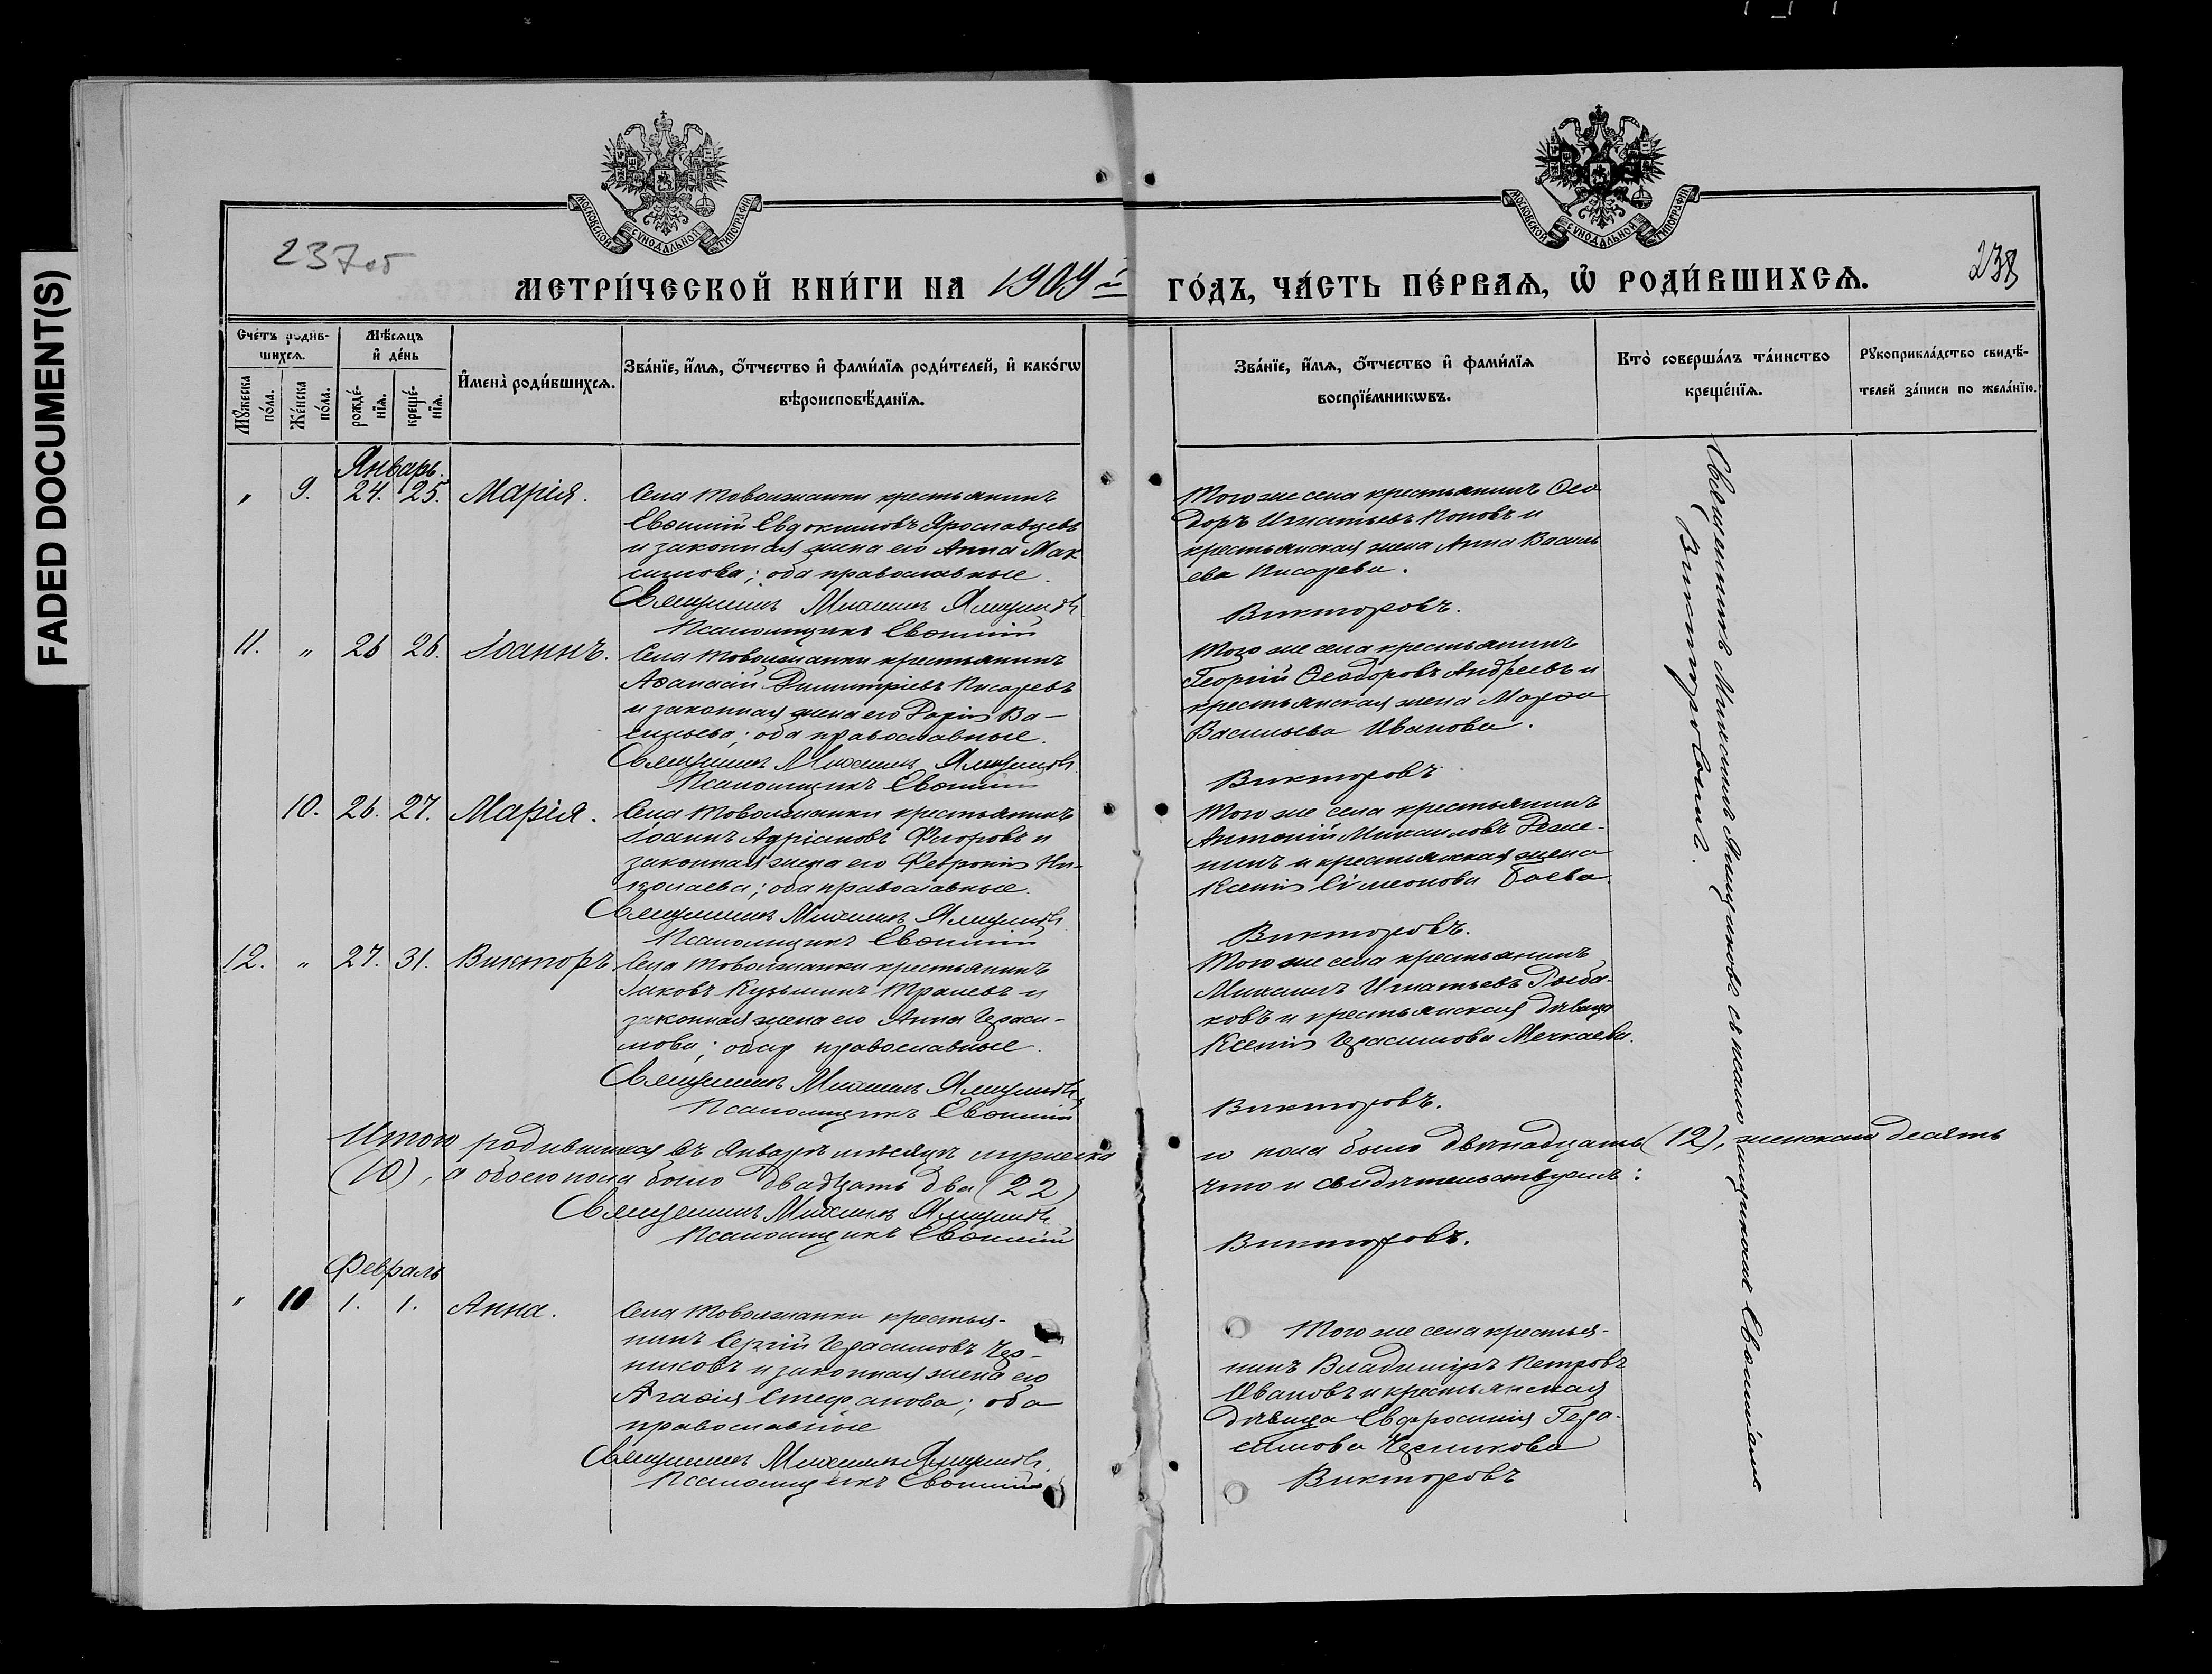 FADED DOCUMENT(S)
МОСКОВСКОЙ СУНОДАЛЬНОЙ ТИПОГРАФІИ
МОСКОВСКОЙ СУНОДАЛЬНОЙ ТИПОГРАФІИ
237об
238
МЕТРИ́ЧЕСКОЙ КНИ́ГИ НА 1909й ГО́ДЪ, ЧА́СТЬ ПЕ́РВАѦ, Ѽ РОДИ́ВШИХСѦ.
Сче́тъ роди́в-
шихсѧ.
Мꙋ́жеска
по́ла.
Же́нска
по́ла.
Мѣ́сѧцъ
и҆ де́нь
рожде́-
нїѧ.
креще́-
нїѧ.
И҆мена̀ роди́вшихсѧ.
Зва́нїе, и҆́мѧ, ѻ҆́тчество и҆ фами́лїѧ роди́телей, и҆ како́гѡ
вѣроисповѣ́данїѧ.
Зва́нїе, и҆́мѧ, ѻ҆́тчество и҆ фами́лїѧ
воспрїе́мникѡвъ.
Кто̀ соверша́лъ та́инство
креще́нїѧ.
Рꙋкоприкла́дство свидѣ́-
телей за́писи по жела́нїю.
Январь.
" 9. 24. 25. Марія.
Села Товолжанки крестьянинъ
Евѳимій Евдокимовъ Ярославцевъ
и законная жена его Анна Мак
симова; оба православные.
Священникъ Михаилъ Ямщиковъ
Псаломщикъ Евѳимій
Того же села крестьянинъ Ѳео
доръ Игнатьевъ Поповъ и
крестьянская жена Анна Василь
ева Писарева.
Викторовъ.
11. " 26 26. Іоаннъ.
Села Товолжанки крестьянинъ
Аѳанасій Димитріевъ Писаревъ
и законная жена его Дарія Ва-
сильева; оба православные.
Священникъ Михаилъ Ямщиковъ
Псаломщикъ Евѳимій
Того же села крестьянинъ
Георгій Ѳеодоровъ Андреевъ и
крестьянская жена Марѳа
Васильева Иванова.
Викторовъ
10. 26. 27. Марія.
Села Товолжанки крестьянинъ
Іоаннъ Адріановъ и
законная жена его Февронія Ни-
колаева; оба православные.
Священникъ Михаилъ Ямщиковъ
Псаломщикъ Евѳимій
Того же села крестьянинъ
Антоній Михаиловъ
нинъ и крестьянская жена
Ксенія Симеонова Боева.
Викторовъ.
12. " 27. 31. Викторъ.
Села Товолжанки крестьянинъ
Іаковъ Кузьминъ и
законная жена его Анна Гераси-
мова; оба православные.
Священникъ Михаилъ Ямщиковъ
Псаломщикъ Евѳимій
Того же села крестьянинъ
Михаилъ Игнатьевъ Рыба-
ковъ и крестьянская дѣвица
Ксенія Герасимова Мечкаева.
Викторовъ.
Итого родившихся въ Январѣ мѣсяцѣ мужеска
го пола было двѣнадцать (12), женскаго десять
(10), а обоего пола было двадцать два (22)
что и свидѣтельствуемъ:
Священникъ Михаилъ Ямщиковъ
Псаломщикъ Евѳимій
Викторовъ.
Февраль
" 10 1. 1. Анна.
Села Товолжанки крестья-
нинъ Сергій Герасимовъ Чер-
никовъ и законная жена его
Агаѳія Стефанова; оба
православные
Священникъ Михаилъ Ямщиковъ.
Псаломщикъ Евѳимій
Того же села крестья-
нинъ Владиміръ Петровъ
Ивановъ и крестьянская
дѣвица Евфросинія Гера-
симова Черникова
Викторовъ
Священникъ Михаилъ Ямщиковъ съ псаломщикомъ Евѳиміемъ
Викторовымъ.